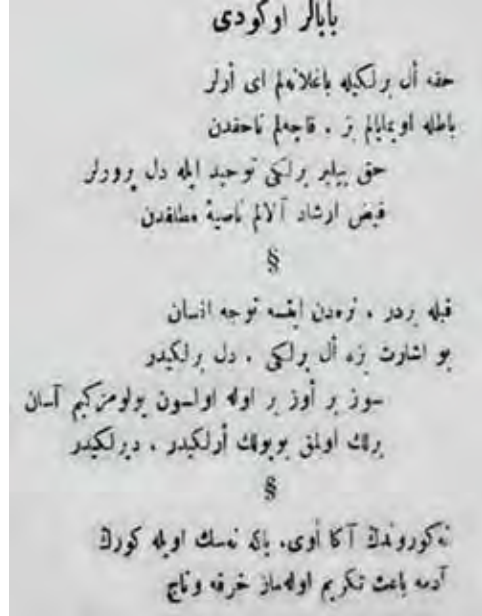 بابالر اوكودى
حقه أل برلكيله باغلانه‌لم اى أرلر
باطله اويمايالم بز . قاچه‌لم ناحقدن
حق بيلير برلكى توحيد ايله دل پرورلر
فيض ارشاد آلالم ناصيهٔ مطلقدن
§
قبله بردر . نره‌دن ايتسه توجه انسان
بو اشارت بزه أل برلكى . دل برلكيدر
سوز بر أوز بر اوله اولسون يولومز كيم آسان
برلك اولمق بويولك أرلكيدر . ديرلكيدر
§
نه‌كوروندڭ آكا أوى، ياكه نه‌سك اويله كورڭ
آدمه باعث تكريم اوله‌ماز خرقه وتاج